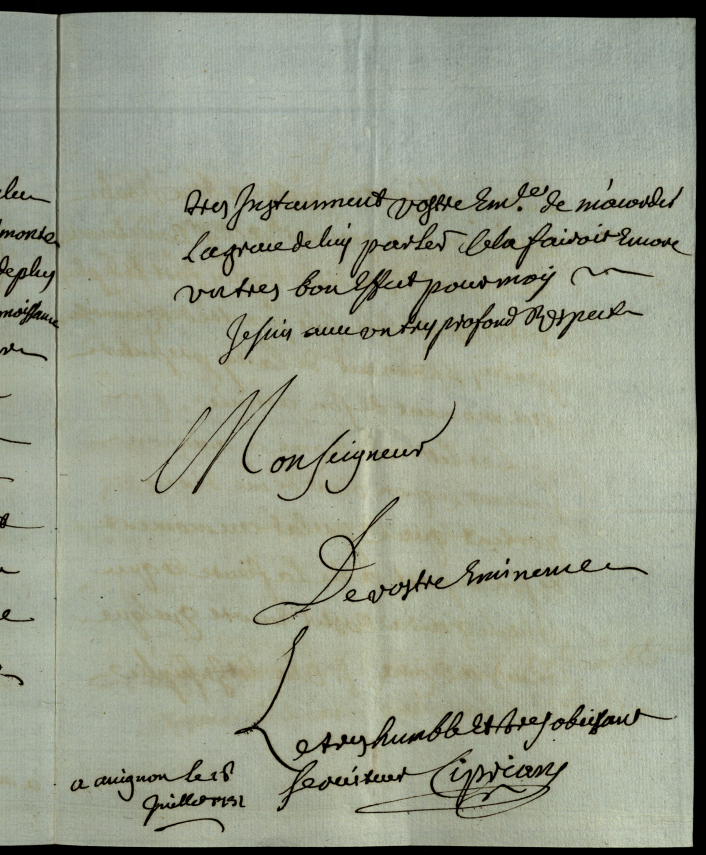 tres Instament vostre Em.ce de m'acorder
la grace de luy parler Cela fairoit Encore
un tres bon Effait pour moy
Je suis avec un tres profond Respect
Monseigneur
De vostre Eminence
Le tres humble et tres obeissant
serviteur Cipriany
a avignon le 18
Juillet 1731